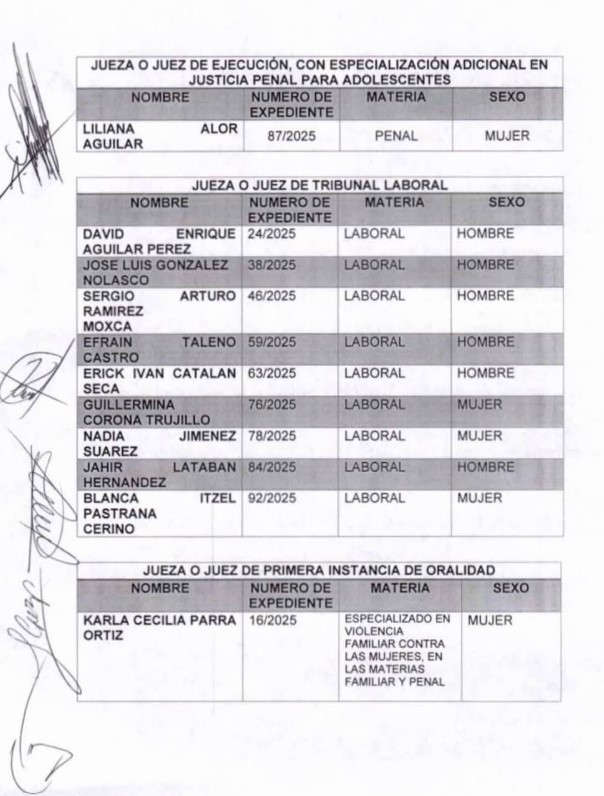 JUEZA O JUEZ DE EJECUCIÓN, CON ESPECIALIZACIÓN ADICIONAL EN
JUSTICIA PENAL PARA ADOLESCENTES
NOMBRE NUMERO DE MATERIA SEXO
EXPEDIENTE
LILIANA ALOR 87/2025 PENAL MUJER
AGUILAR
JUEZA O JUEZ DE TRIBUNAL LABORAL
NOMBRE NUMERO DE MATERIA SEXO
EXPEDIENTE
DAVID ENRIQUE 24/2025 LABORAL HOMBRE
AGUILAR PEREZ
JOSE LUIS GONZALEZ 38/2025 LABORAL HOMBRE
NOLASCO
SERGIO ARTURO 46/2025 LABORAL HOMBRE
RAMIREZ
MOXCA
EFRAIN TALENO 59/2025 LABORAL HOMBRE
CASTRO
ERICK IVAN CATALAN 63/2025 LABORAL HOMBRE
SECA
GUILLERMINA 76/2025 LABORAL MUJER
CORONA TRUJILLO
NADIA JIMENEZ 78/2025 LABORAL MUJER
SUAREZ
JAHIR LATABAN 84/2025 LABORAL HOMBRE
HERNANDEZ
BLANCA ITZEL 92/2025 LABORAL MUJER
PASTRANA
CERINO
JUEZA O JUEZ DE PRIMERA INSTANCIA DE ORALIDAD
NOMBRE NUMERO DE MATERIA SEXO
EXPEDIENTE
KARLA CECILIA PARRA 16/2025 ESPECIALIZADO EN MUJER
ORTIZ VIOLENCIA
FAMILIAR CONTRA
LAS MUJERES, EN
LAS MATERIAS
FAMILIAR Y PENAL